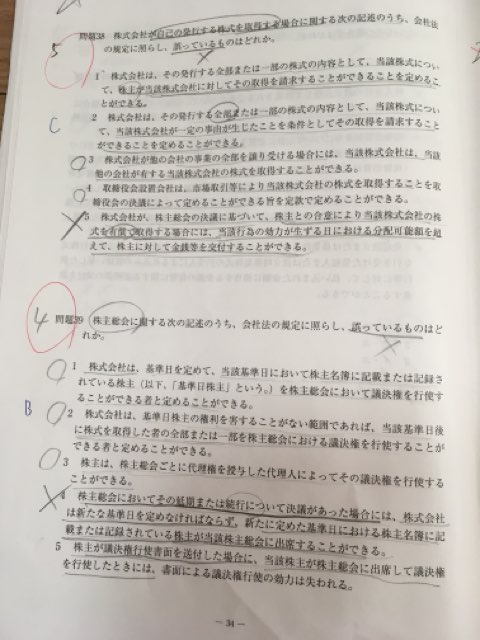 5
問題38 株式会社が自己の発行する株式を取得する場合に関する次の記述のうち、会社法
の規定に照らし、誤っているものはどれか。
1 株式会社は、その発行する全部または一部の株式の内容として、当該株式につい
て、株主が当該株式会社に対してその取得を請求することができることを定めるこ
とができる。
C
2 株式会社は、その発行する全部または一部の株式の内容として、当該株式につい
て、当該株式会社が一定の事由が生じたことを条件としてその取得を請求すること
ができることを定めることができる。
3 株式会社が他の会社の事業の全部を譲り受ける場合には、当該株式会社は、当該
他の会社が有する当該株式会社の株式を取得することができる。
4 取締役会設置会社は、市場取引等により当該株式会社の株式を取得することを取
締役会の決議によって定めることができる旨を定款で定めることができる。
5 株式会社が、株主総会の決議に基づいて、株主との合意により当該株式会社の株
式を有償で取得する場合には、当該行為の効力が生ずる日における分配可能額を超
えて、株主に対して金銭等を交付することができる。
4
問題39 株主総会に関する次の記述のうち、会社法の規定に照らし、誤っているものはど
れか。
1 株式会社は、基準日を定めて、当該基準日において株主名簿に記載または記録さ
れている株主（以下、「基準日株主」という。）を株主総会において議決権を行使す
ることができる者と定めることができる。
B
2 株式会社は、基準日株主の権利を害することがない範囲であれば、当該基準日後
に株式を取得した者の全部または一部を株主総会における議決権を行使することが
できる者と定めることができる。
3 株主は、株主総会ごとに代理権を授与した代理人によってその議決権を行使する
ことができる。
4 株主総会においてその延期または続行について決議があった場合には、株式会社
は新たな基準日を定めなければならず、新たに定めた基準日における株主名簿に記
載または記録されている株主が当該株主総会に出席することができる。
5 株主が議決権行使書面を送付した場合に、当該株主が株主総会に出席して議決権
を行使したときには、書面による議決権行使の効力は失われる。
— 34 —